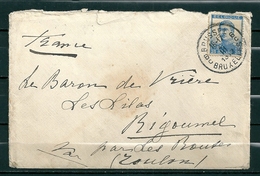 France
BRUSSEL
BRUXELLES
Le Baron de Vrière
Les Lilas
Rigoumel
par par Les Routes
(Toulon)